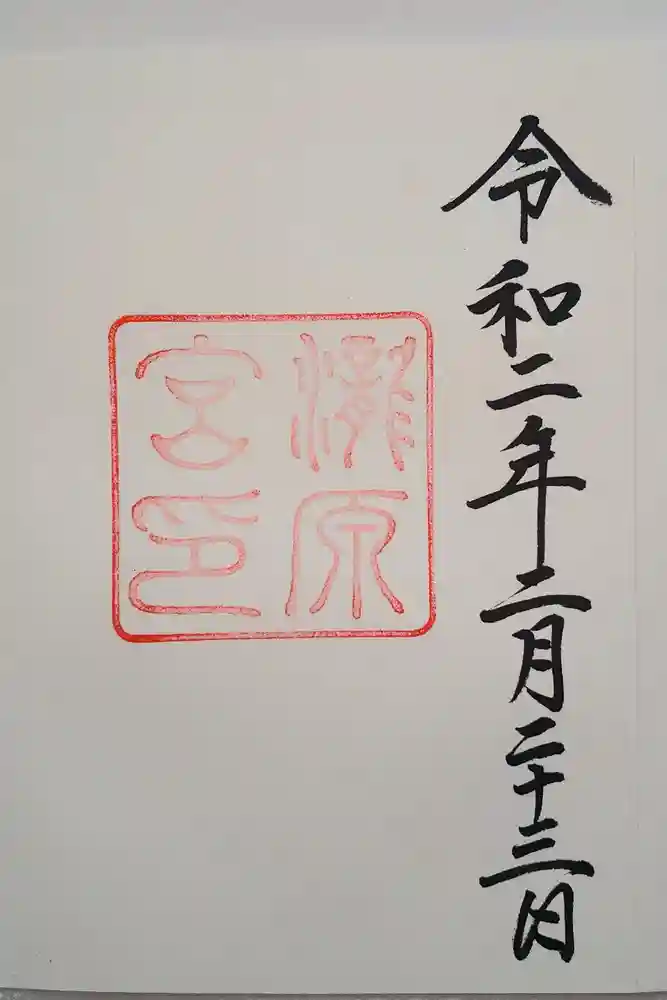 令和二年二月二十三日
瀧原
宮印